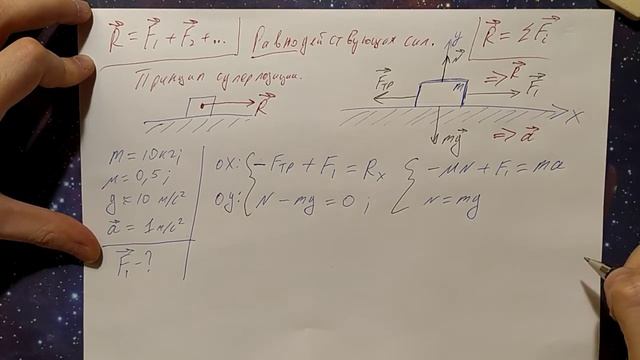 R⃗ = F⃗₁ + F⃗₂ + ... Равнодействующая сил. R⃗ = Σ F⃗ᵢ
Принцип суперпозиции.
R⃗
y
N⃗
F⃗тр
m
=> R⃗
F⃗₁
x
mg⃗
=> a⃗
m = 10 кг;
μ = 0,5;
g ≈ 10 м/с²
a⃗ = 1 м/с²
F⃗₁ - ?
ox: { -Fтр + F₁ = Rx { -μN + F₁ = ma
oy: N - mg = 0; N = mg